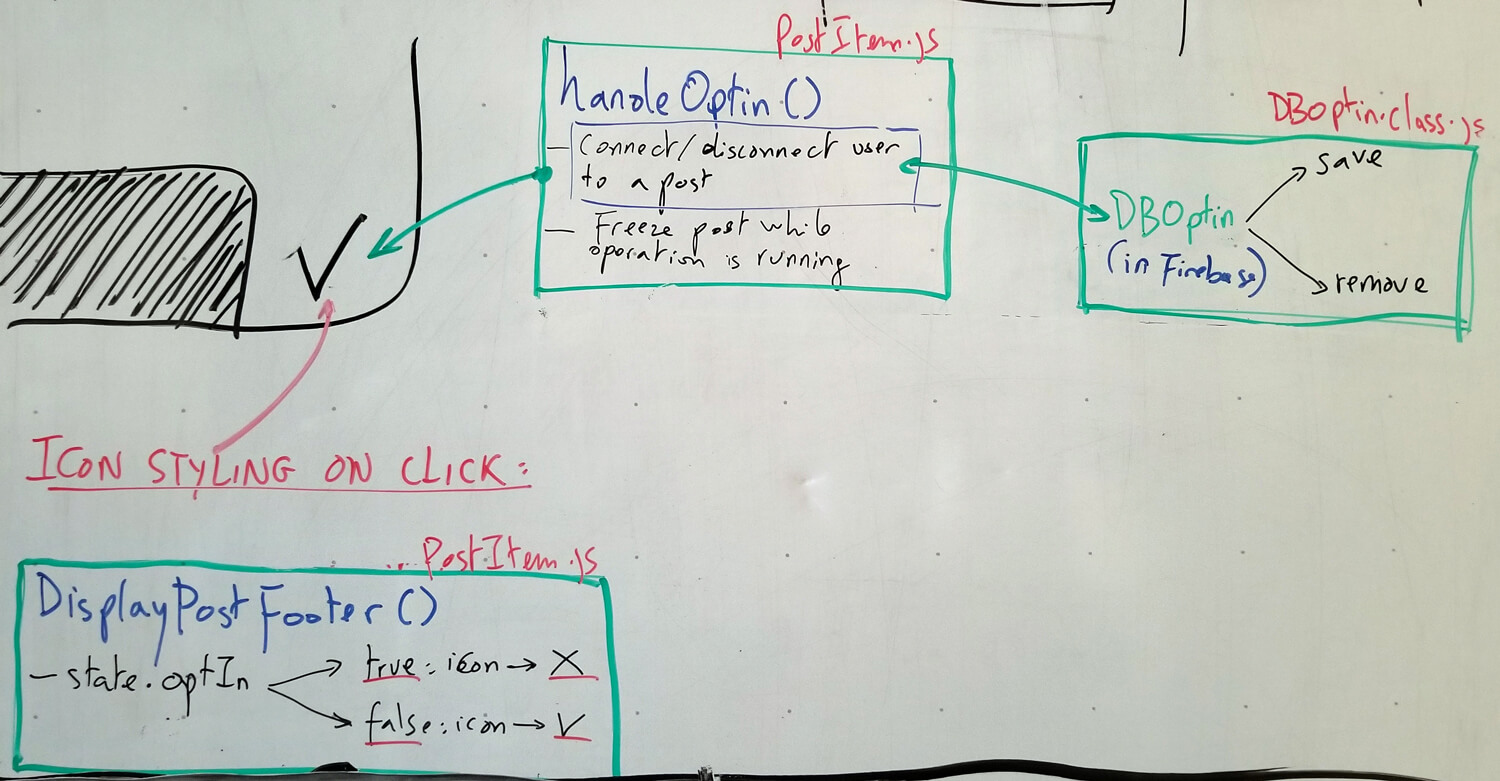 PostItem.js
handleOptin()
— Connect/disconnect user
to a post
— Freeze post while
operation is running
DBOptin.class.js
DBOptin
(in Firebase)
save
remove
ICON STYLING ON CLICK:
...PostItem.js
DisplayPostFooter()
— state.optIn
true: icon → X
false: icon → V